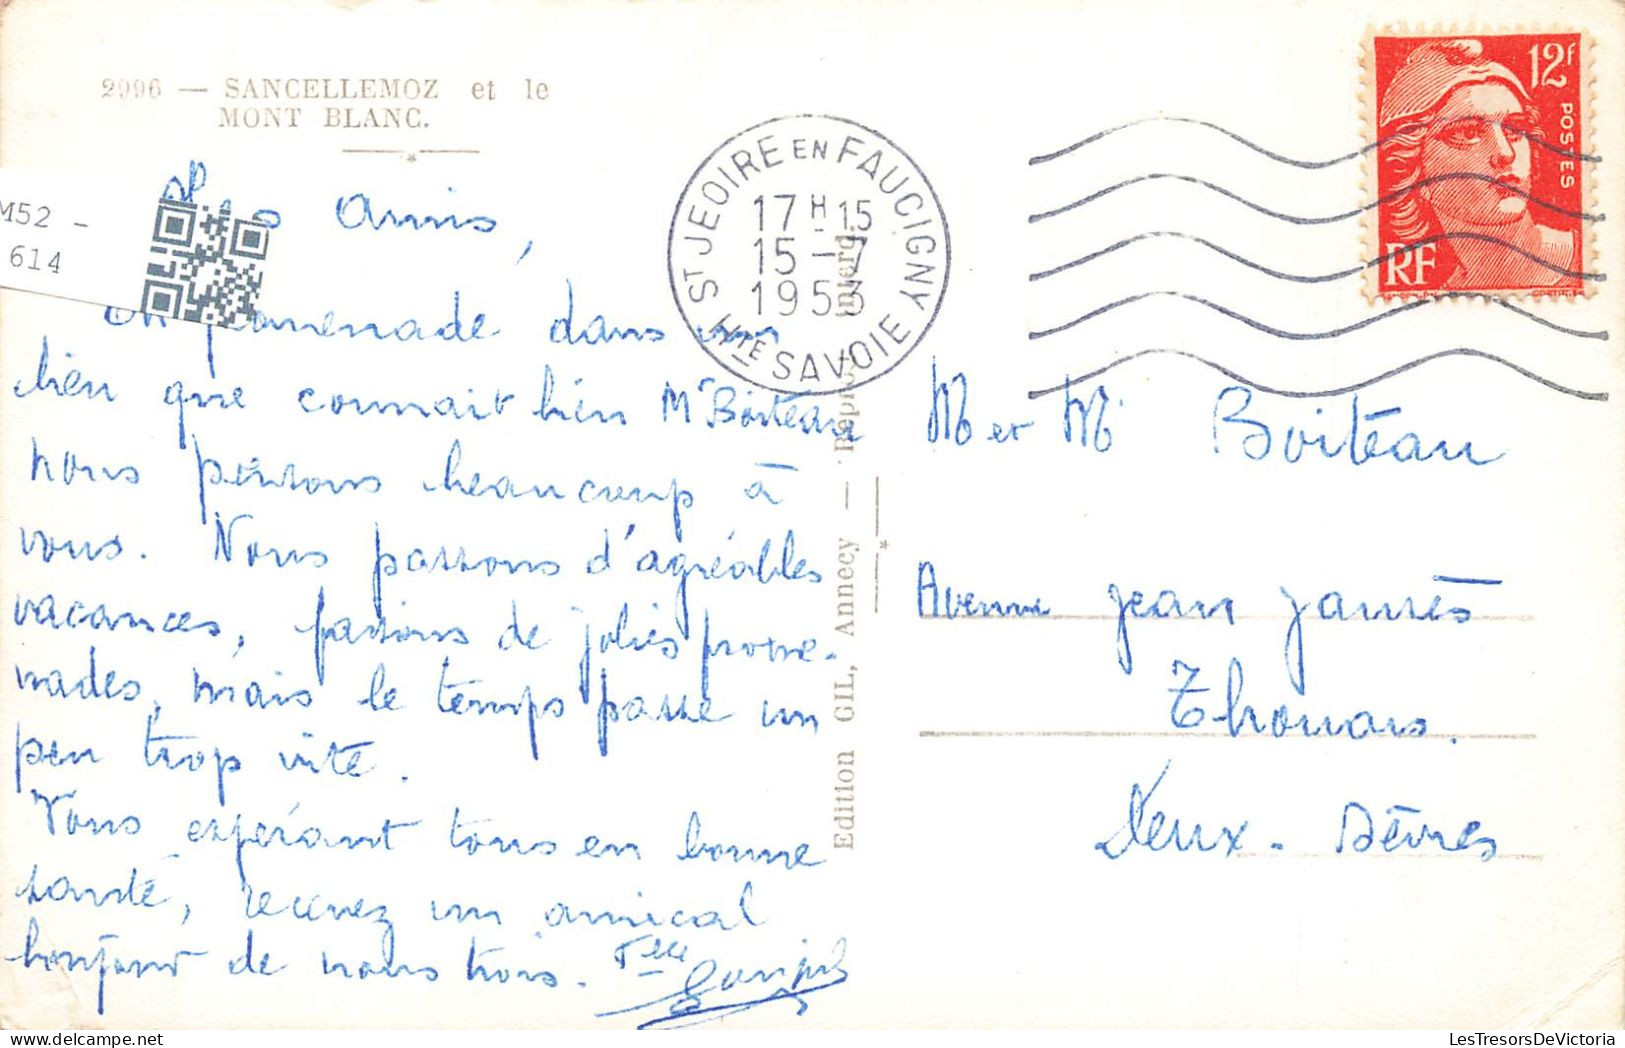 2996 — SANCELLEMOZ et le
MONT BLANC.
M52 -
614
Amis,
En promenade dans un
lieu que connait bien Mr Boiteau
nous pensons beaucoup à
vous. Nous passons d'agréables
vacances, faisons de jolies prome-
nades, mais le temps passe un
peu trop vite.
Vous espérant tous en bonne
santé, recevez un amical
bonjour de nous trois.
Edition GIL, Annecy —
ST JEOIRE EN FAUCIGNY
17H15
15-7
1953
HTE SAVOIE
12f
POSTES
RF
M et Me Boiteau
Avenue Jean Jaurès
Thouars.
Deux-Sèvres
LesTresorsDeVictoria